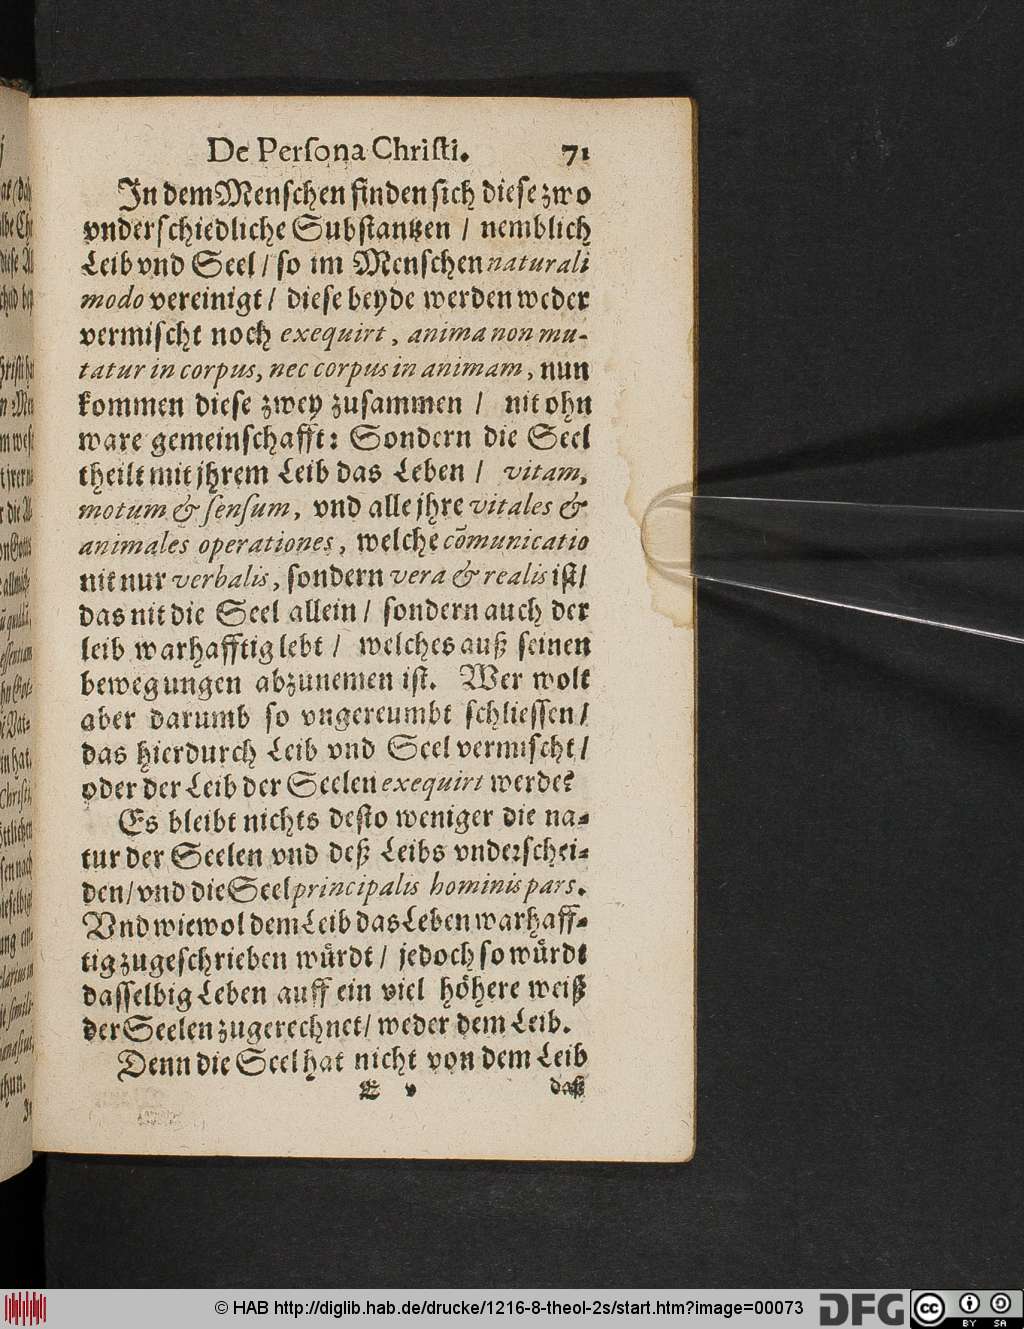 De Perſona Chriſti. 71
In dem Menſchen finden ſich dieſe zwo
vnderſchiedliche Subſtantzen / nemblich
Leib vnd Seel / ſo im Menſchen naturali
modo vereinigt / dieſe beyde werden weder
vermiſcht noch exequirt, anima non mu-
tatur in corpus, nec corpus in animam, nun
kommen dieſe zwey zuſammen / nit ohn
ware gemeinſchafft: Sondern die Seel
theilt mit jhrem Leib das Leben / vitam,
motum & ſenſum, vnd alle jhre vitales &
animales operationes, welche cōmunicatio
nit nur verbalis, ſondern vera & realis iſt /
das nit die Seel allein / ſondern auch der
leib warhafftig lebt / welches auß ſeinen
bewegungen abzunemen iſt. Wer wolt
aber darumb ſo vngereumbt ſchlieſſen /
das hierdurch Leib vnd Seel vermiſcht /
oder der Leib der Seelen exequirt werde?
Es bleibt nichts deſto weniger die na-
tur der Seelen vnd deß Leibs vnderſchei-
den / vnd die Seel principalis hominis pars.
Vnd wiewol dem Leib das Leben warhaff-
tig zugeſchrieben wuͤrdt / jedoch ſo wuͤrdt
daſſelbig Leben auff ein viel hoͤhere weiß
der Seelen zugerechnet / weder dem Leib.
Denn die Seel hat nicht von dem Leib
E v daß
© HAB http://diglib.hab.de/drucke/1216-8-theol-2s/start.htm?image=00073
DFG cc BY SA